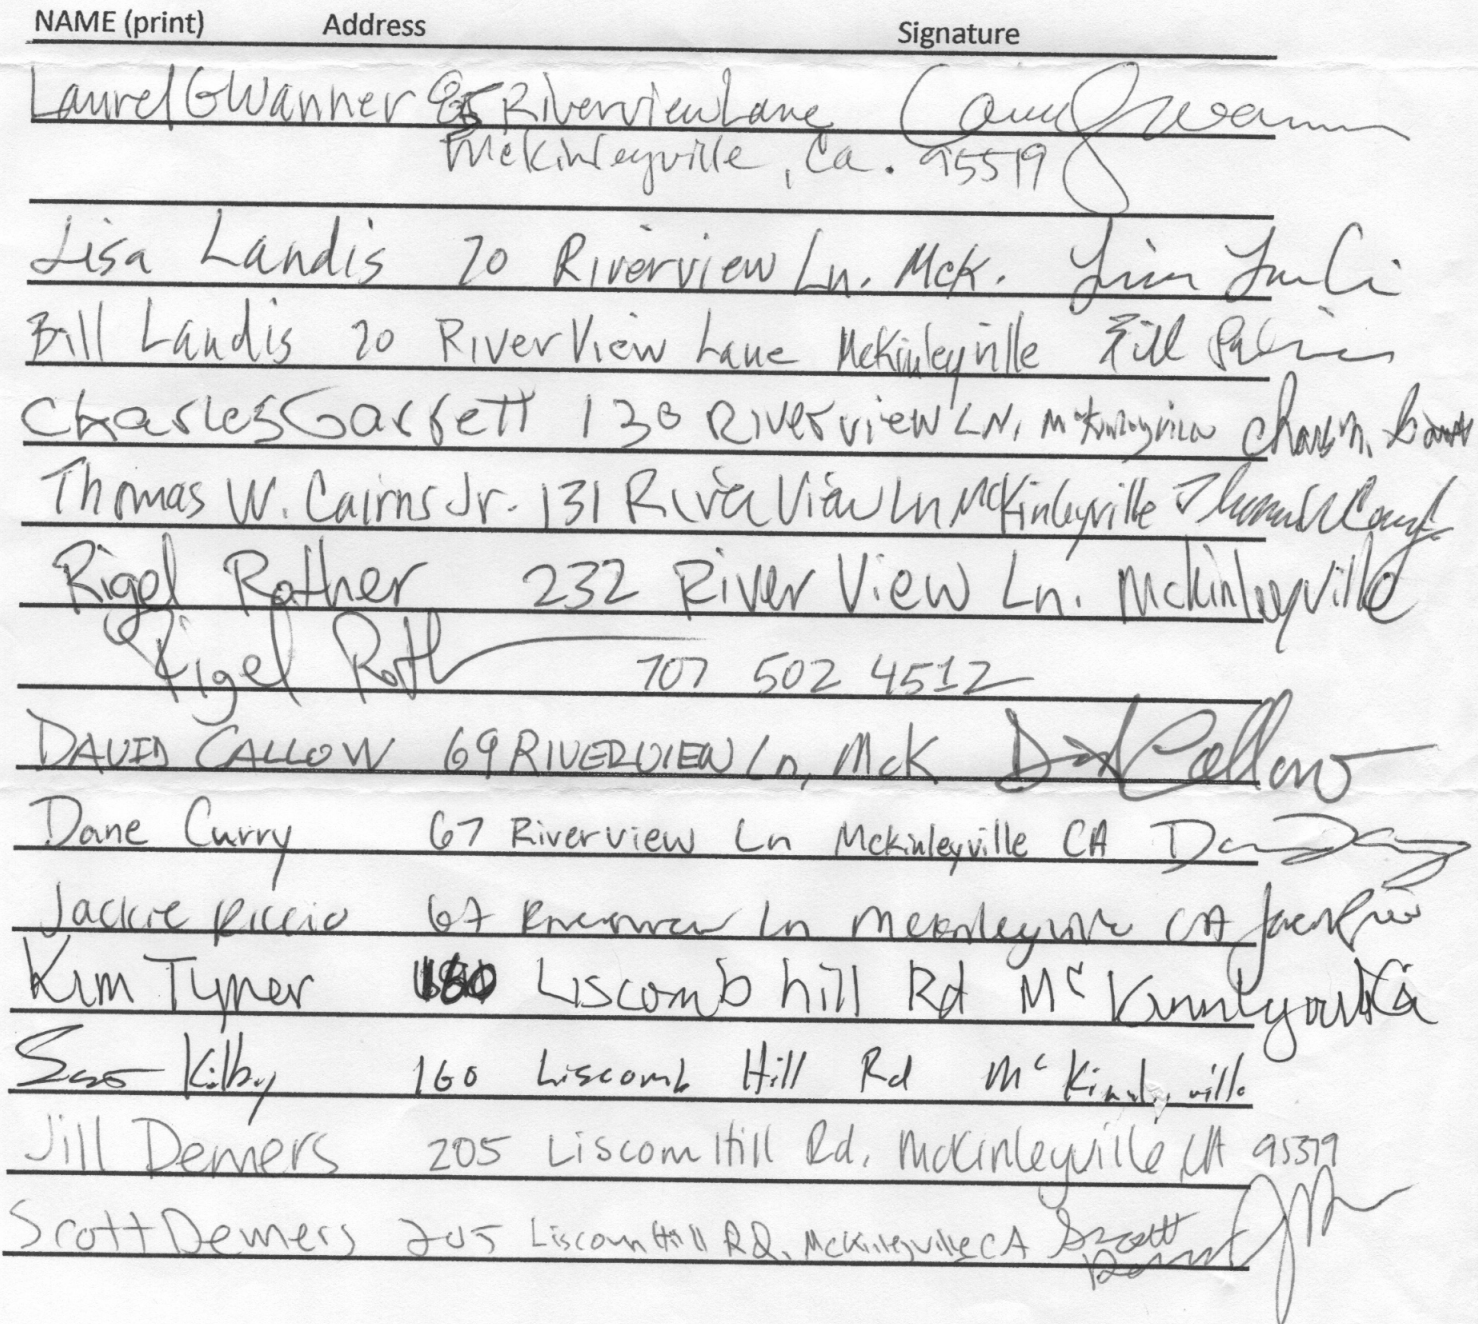 NAME (print) Address Signature
Laurel G Wanner 85 Riverview Lane
Mckinleyville, Ca. 95519
Lisa Landis 20 Riverview Ln. McK.
Bill Landis 20 River View Lane McKinleyville Bill
Charles Garrett 130 RiverviewLN,
Thomas W. Cairns Jr. 131 River View Ln McKinleyville
Rigel Rother 232 River View Ln. Mckinleyville
Rigel Roth 707 502 4512
DAVID CALLOW 69 RIVERVIEW Ln, McK Callow
Dane Curry 67 Riverview Ln Mckinleyville CA
Jackie Riccio 67 Riverview Ln Mckinleyville CA
Kim Tyner 160 Liscomb hill Rd Mc
Kilby 160 Liscomb Hill Rd McKinleyville
Jill Demers 205 Liscom Hill Rd, McKinleyville, CA
Scott Demers 205 Liscom Hill RD, McKinleyville CA Scott